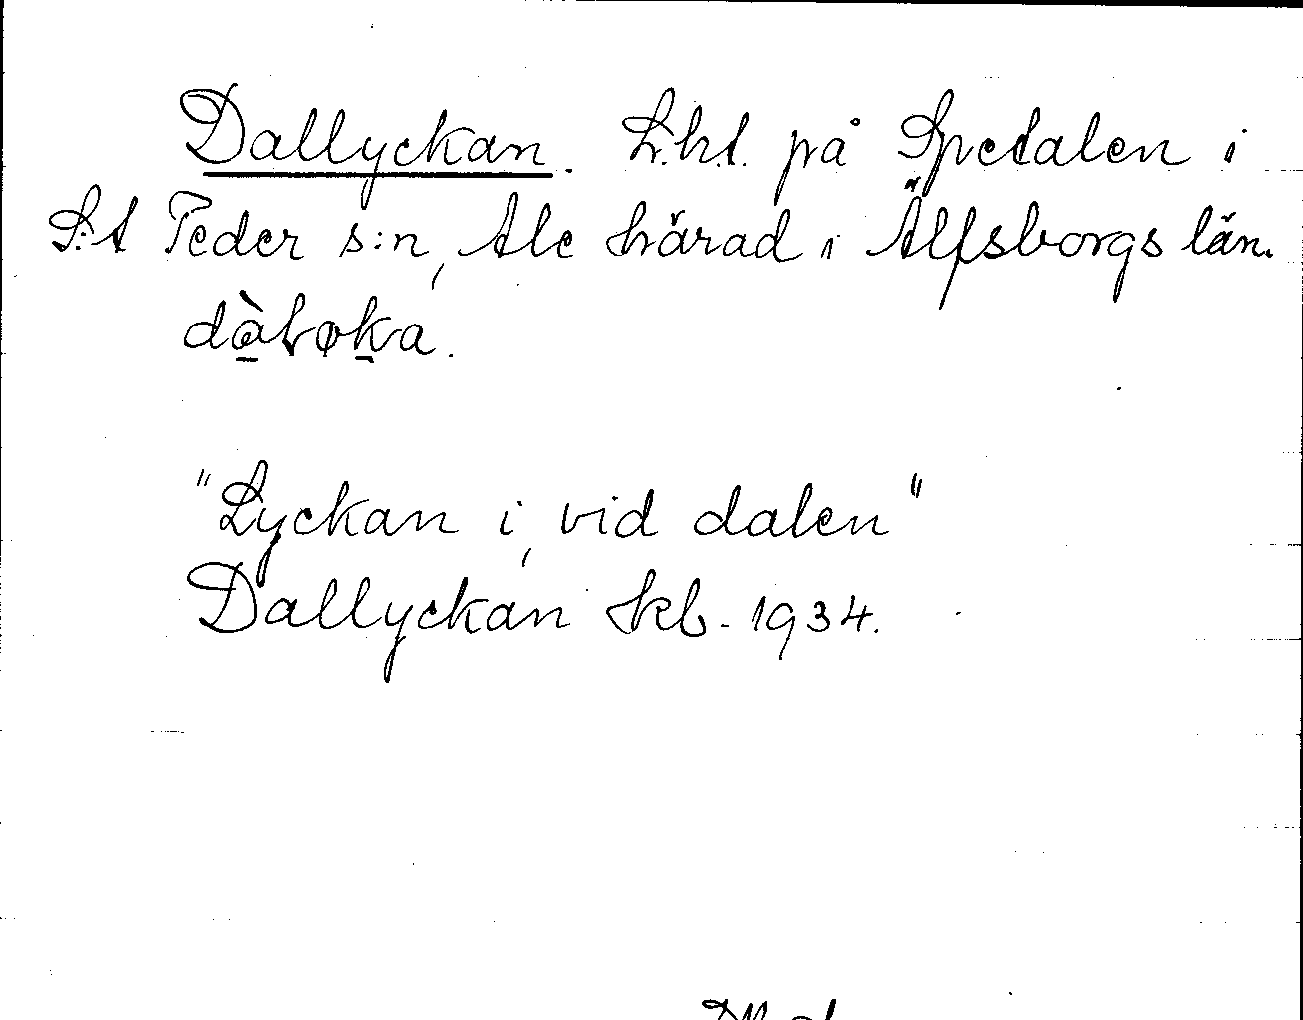 Dallyckan. L.h.t. på Spetalen i
S:t Peder s:n, Ale härad i Älfsborgs län.
"Lyckan i, vid dalen"
Dallyckan Skb. 1934.